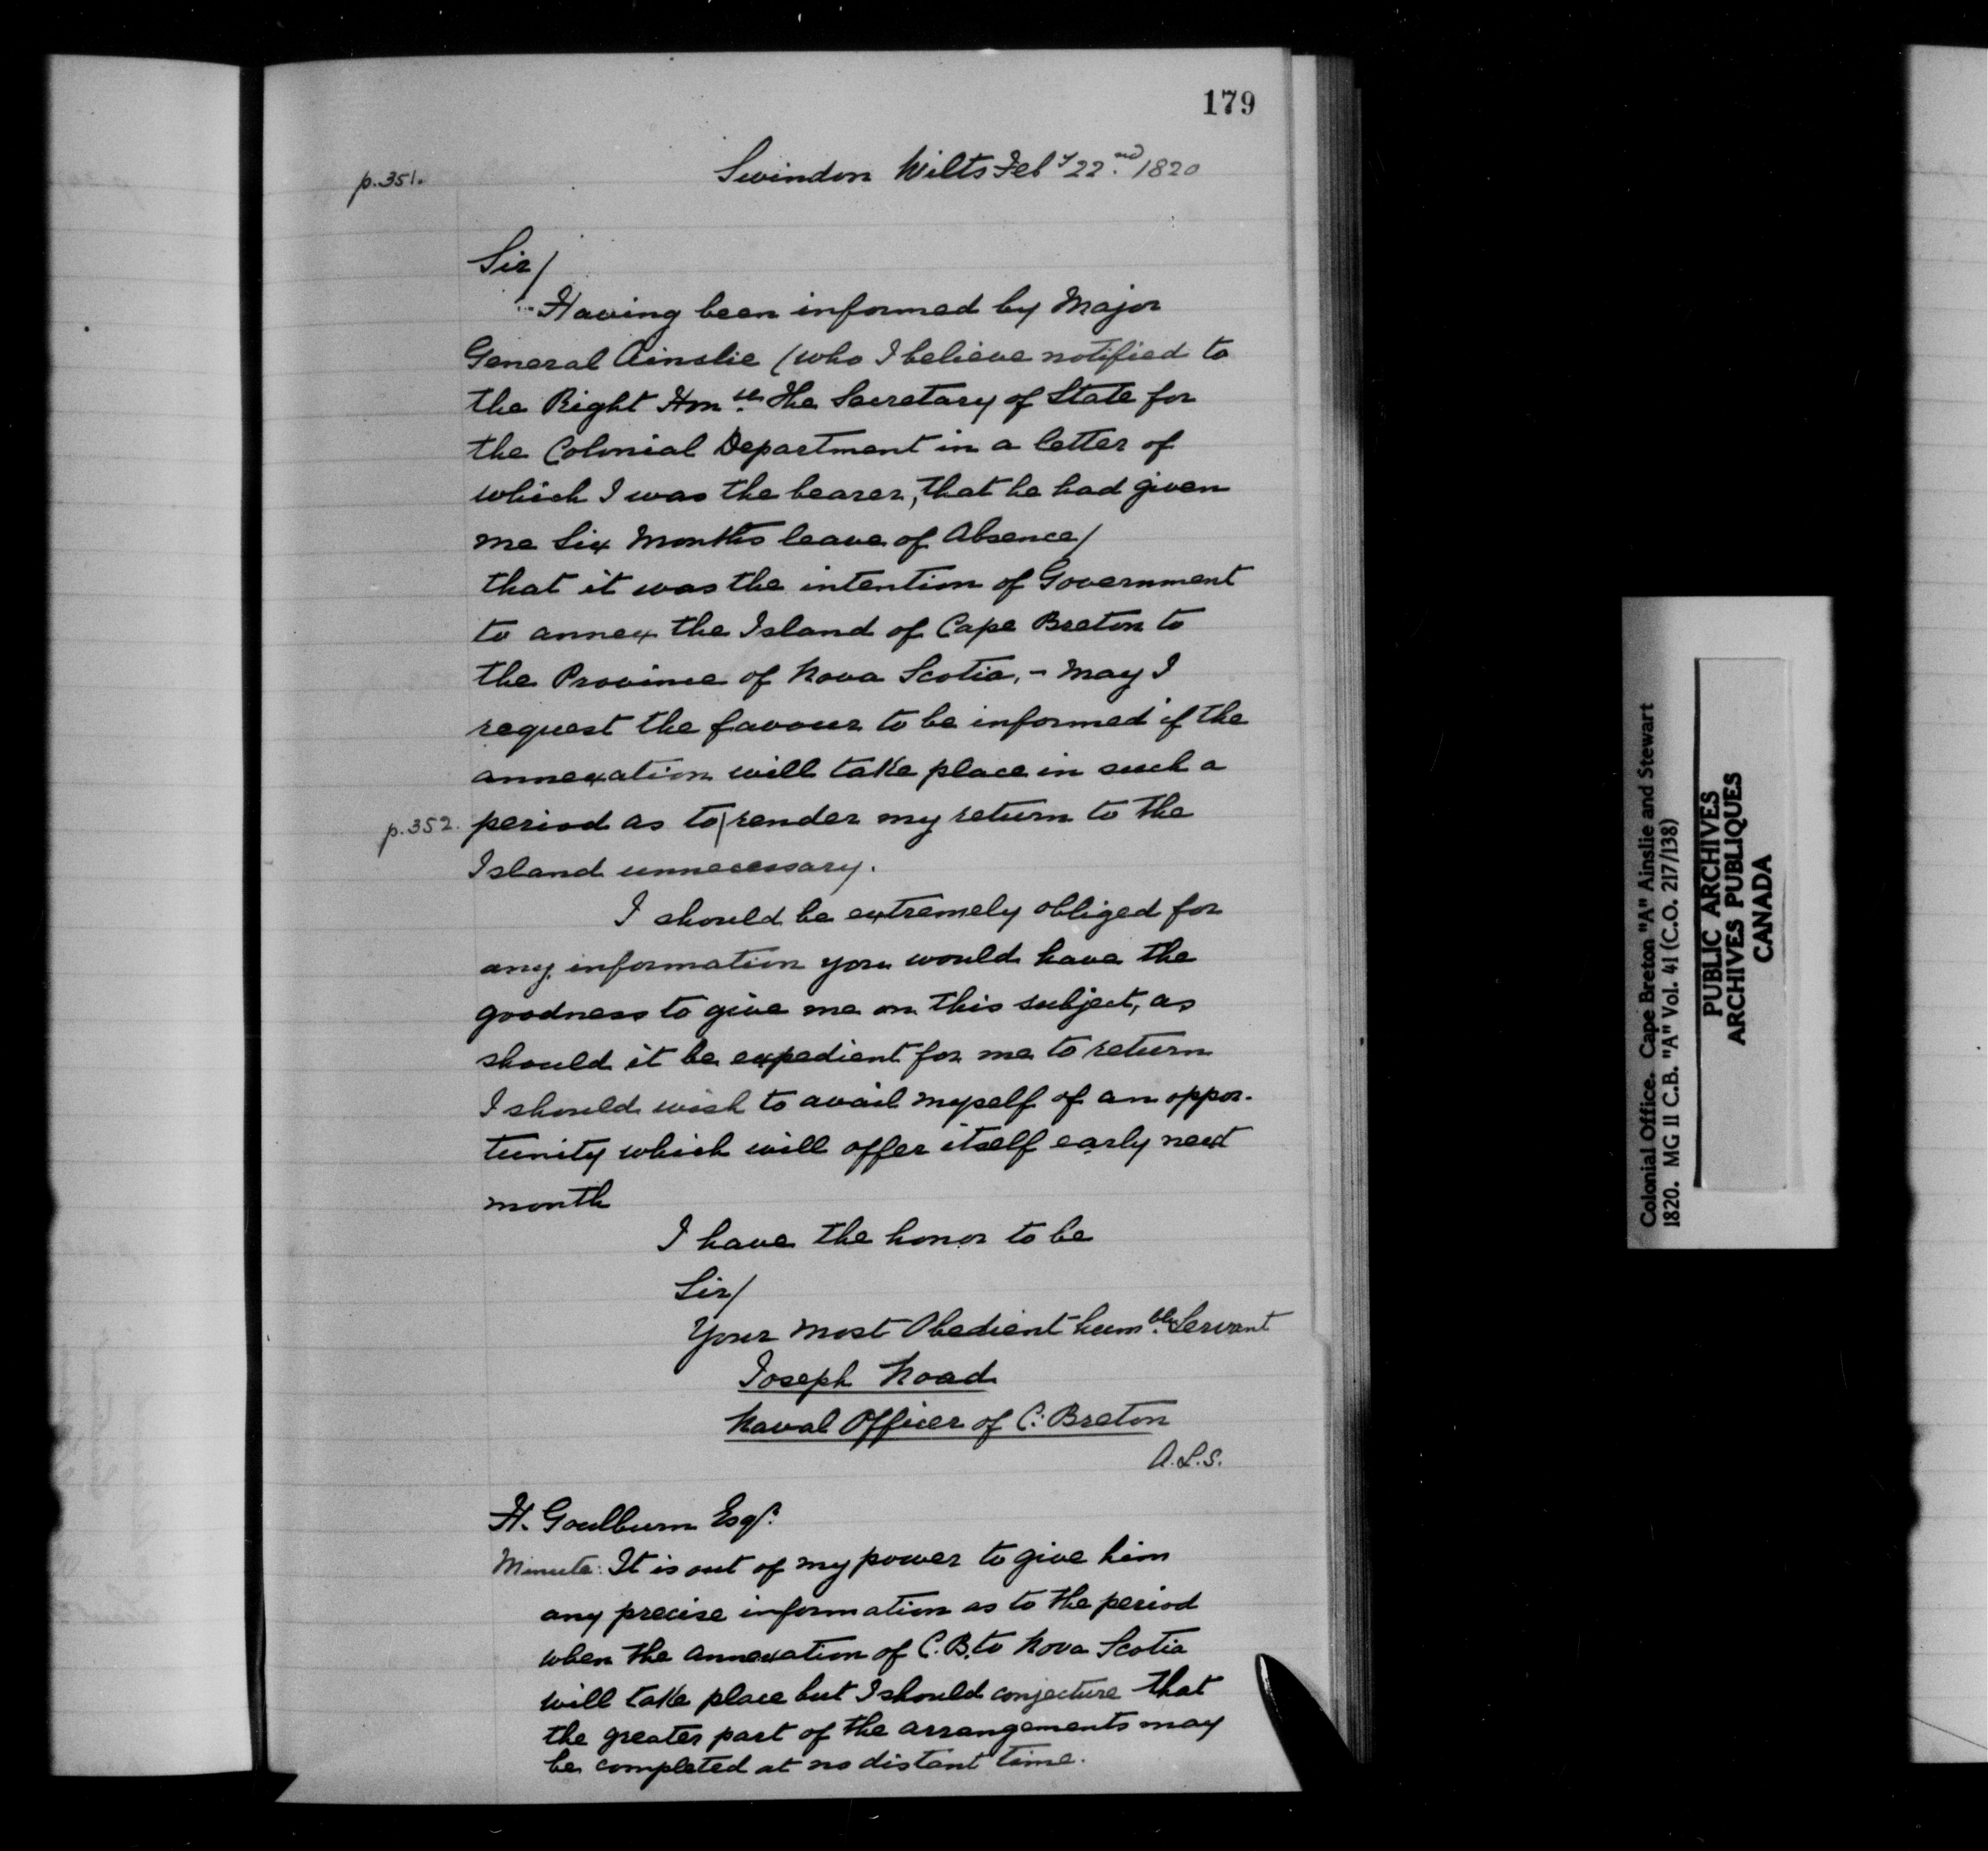 179
p.351.
Swindon Wilts Feby 22nd. 1820
Sir/
Having been informed by Major
General Ainslie (who I believe notified to
the Right Honble. the Secretary of State for
the Colonial Department in a letter of
which I was the bearer, that he had given
me Six Months leave of Absence/
that it was the intention of Government
to annex the Island of Cape Breton to
the Province of Nova Scotia, - May I
request the favour to be informed if the
annexation will take place in such a
p.352. period as to|render my return to the
Island unnecessary.
I should be extremely obliged for
any information you would have the
goodness to give me on this subject, as
should it be expedient for me to return
I should wish to avail myself of an oppor-
tunity which will offer itself early next
month
I have the honor to be
Sir/
Your most Obedient humble. Servant
Joseph Noad
Naval Officer of C: Breton
A.L.S.
H. Goulburn Esqr.
Minute: It is out of my power to give him
any precise information as to the period
when the annexation of C.B. to Nova Scotia
will take place but I should conjecture that
the greater part of the arrangements may
be completed at no distant time.
Colonial Office. Cape Breton "A" Ainslie and Stewart
1820. MG 11 C.B. "A" Vol. 41 (C.O. 217/138)
PUBLIC ARCHIVES
ARCHIVES PUBLIQUES
CANADA